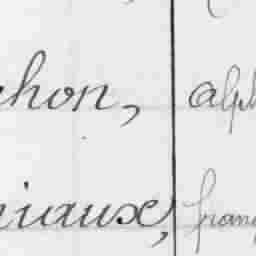 chon, alph
niaux, franç